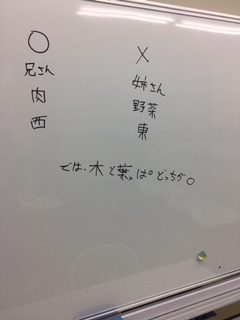 ○ ×
兄さん 姉さん
肉 野菜
西 東
では、木と葉っぱどっちが○